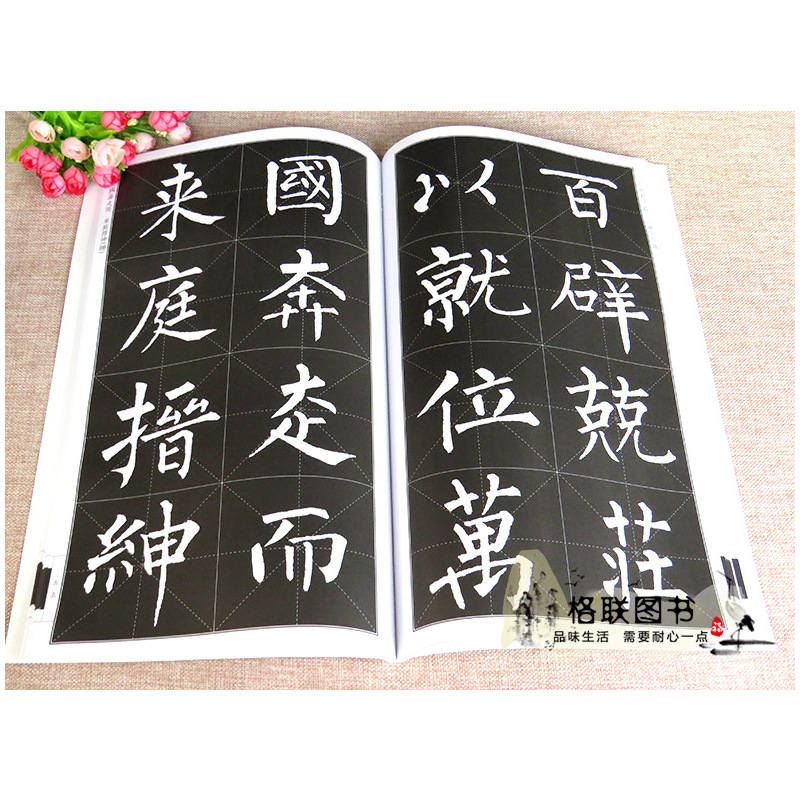 百辟兢莊
以就位萬
國奔走而
来庭搢紳
格联图书
品味生活 需要耐心一点